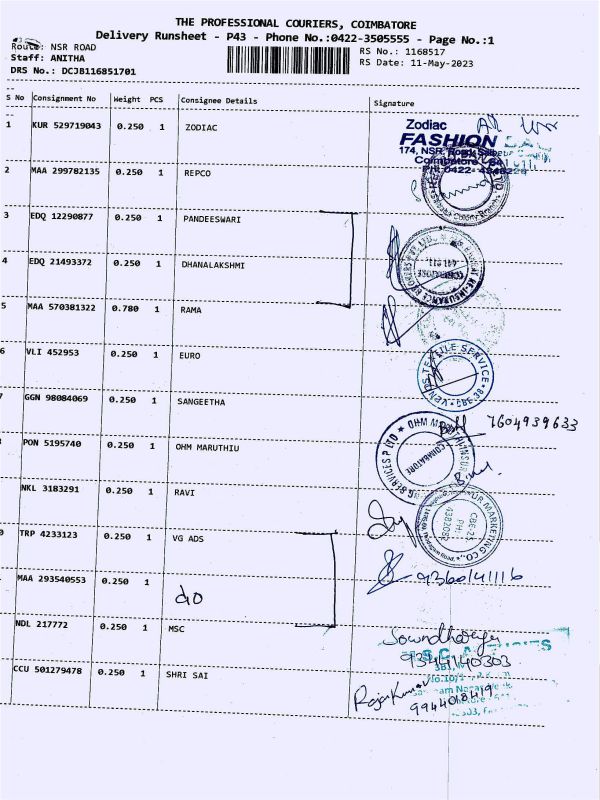 THE PROFESSIONAL COURIERS, COIMBATORE
Delivery Runsheet - P43 - Phone No.:0422-3505555 - Page No.:1
Route: NSR ROAD
Staff: ANITHA
DRS No.: DCJB116851701
RS No.: 1168517
RS Date: 11-May-2023
S No Consignment No Weight PCS Consignee Details Signature
1 KUR 529719043 0.250 1 ZODIAC
Zodiac
FASHION
174, NSR. Road
Coimbatore
2 MAA 299782135 0.250 1 REPCO
3 EDQ 12290877 0.250 1 PANDEESWARI
4 EDQ 21493372 0.250 1 DHANALAKSHMI
5 MAA 570381322 0.780 1 RAMA
6 VLI 452953 0.250 1 EURO
TEXTILE SERVICE
GGN 98084069 0.250 1 SANGEETHA
7604939633
PON 5195740 0.250 1 OHM MARUTHIU
OHM
COIMBATORE
SERVICES P LTD
NKL 3183291 0.250 1 RAVI
MARKETING CO.,
CBE-25
PH:
4382082
TRP 4233123 0.250 1 VG ADS
9360141116
MAA 293540553 0.250 1 do
NDL 217772 0.250 1 MSC
9344140303
CCU 501279478 0.250 1 SHRI SAI
RajaKumar
9944018419